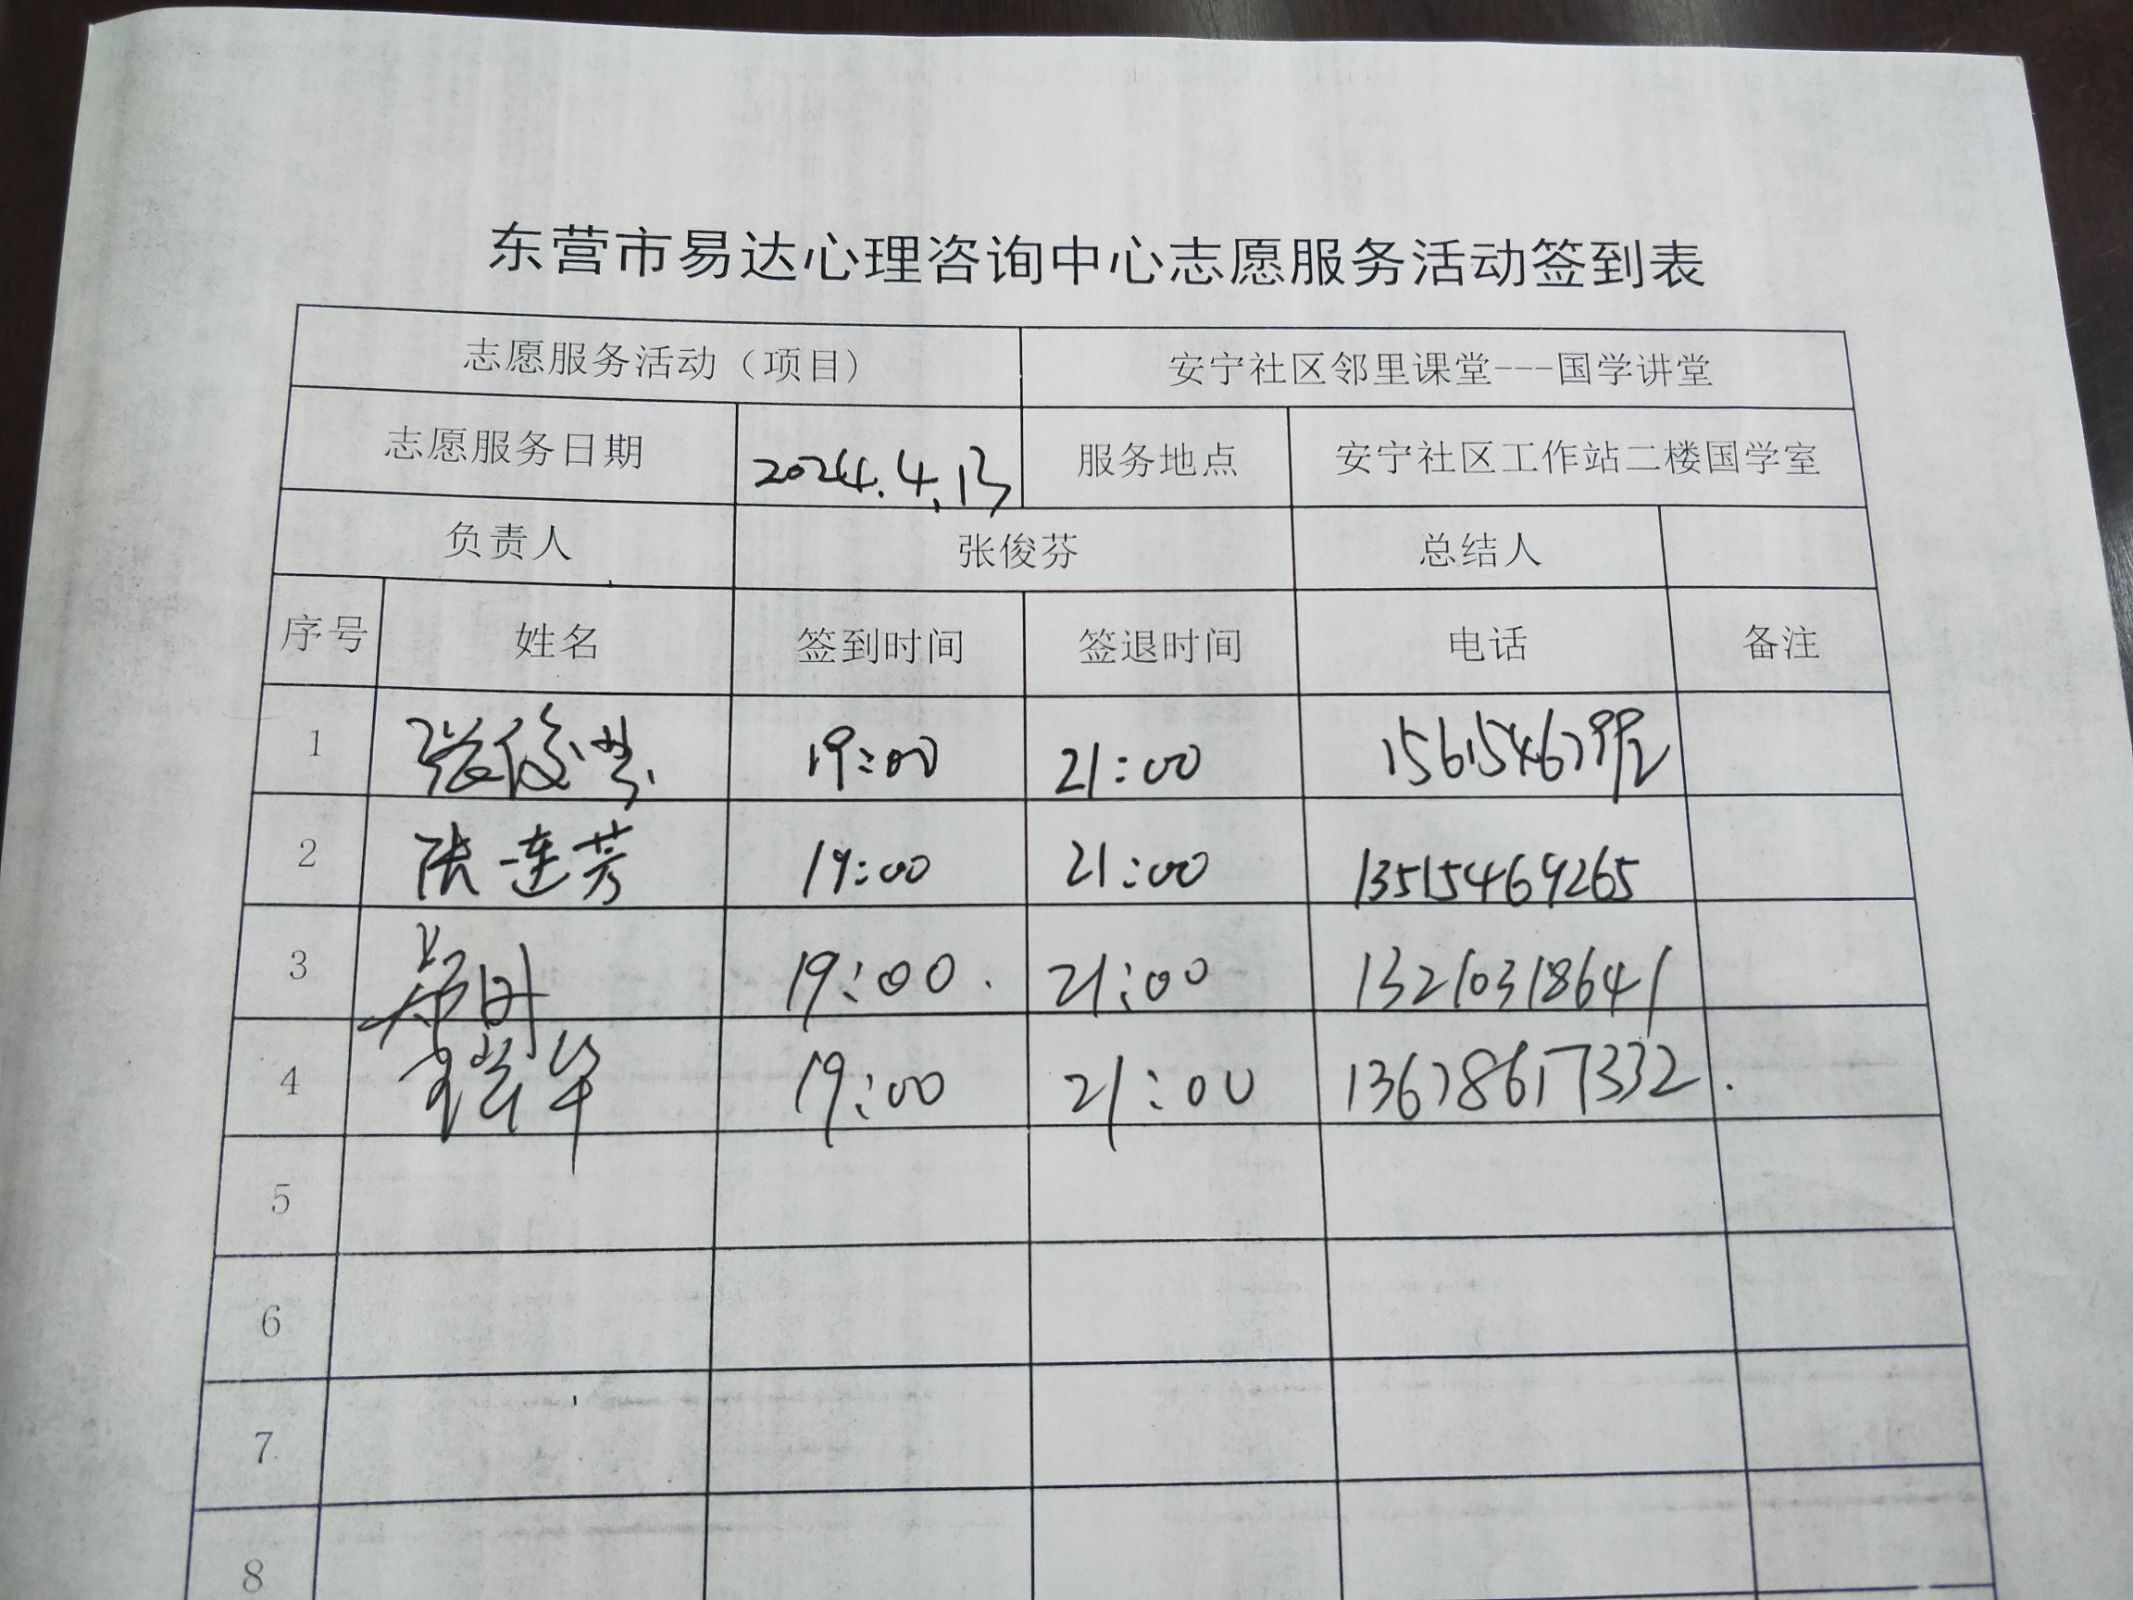 东营市易达心理咨询中心志愿服务活动签到表
志愿服务活动（项目） 安宁社区邻里课堂---国学讲堂
志愿服务日期 2024.4.13 服务地点 安宁社区工作站二楼国学室
负责人 张俊芬 总结人
序号 姓名 签到时间 签退时间 电话 备注
1 张俊芬 19:00 21:00
2 张连芳 19:00 21:00 13515469265
3 19:00 21:00 13210318641
4 19:00 21:00 13678617332
5
6
7
8